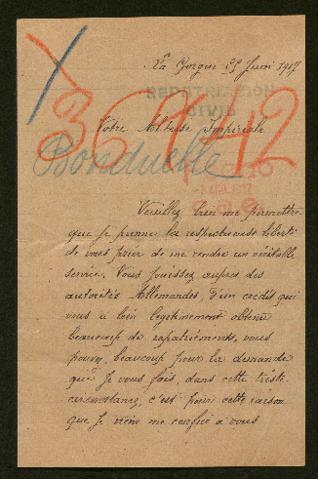 La Gorgue 25 Juin 1917
RAPATRIATION
CIVIL
36 12
Votre Altesse Impériale
Bonduelle
Veuillez bien me permettre
que je prenne la respectueuse liberté
de vous prier de me rendre un véritable
service. Vous jouissez aupres des
autorités Allemandes, d'un crédit qui
vous a bien légitimement obtenu
beaucoup de rapatriéments, vous
pouvez beaucoup pour la demande
que Je vous fais, dans cette triste
circonstance, c'est pour cette raison
que Je viens me confier a vous